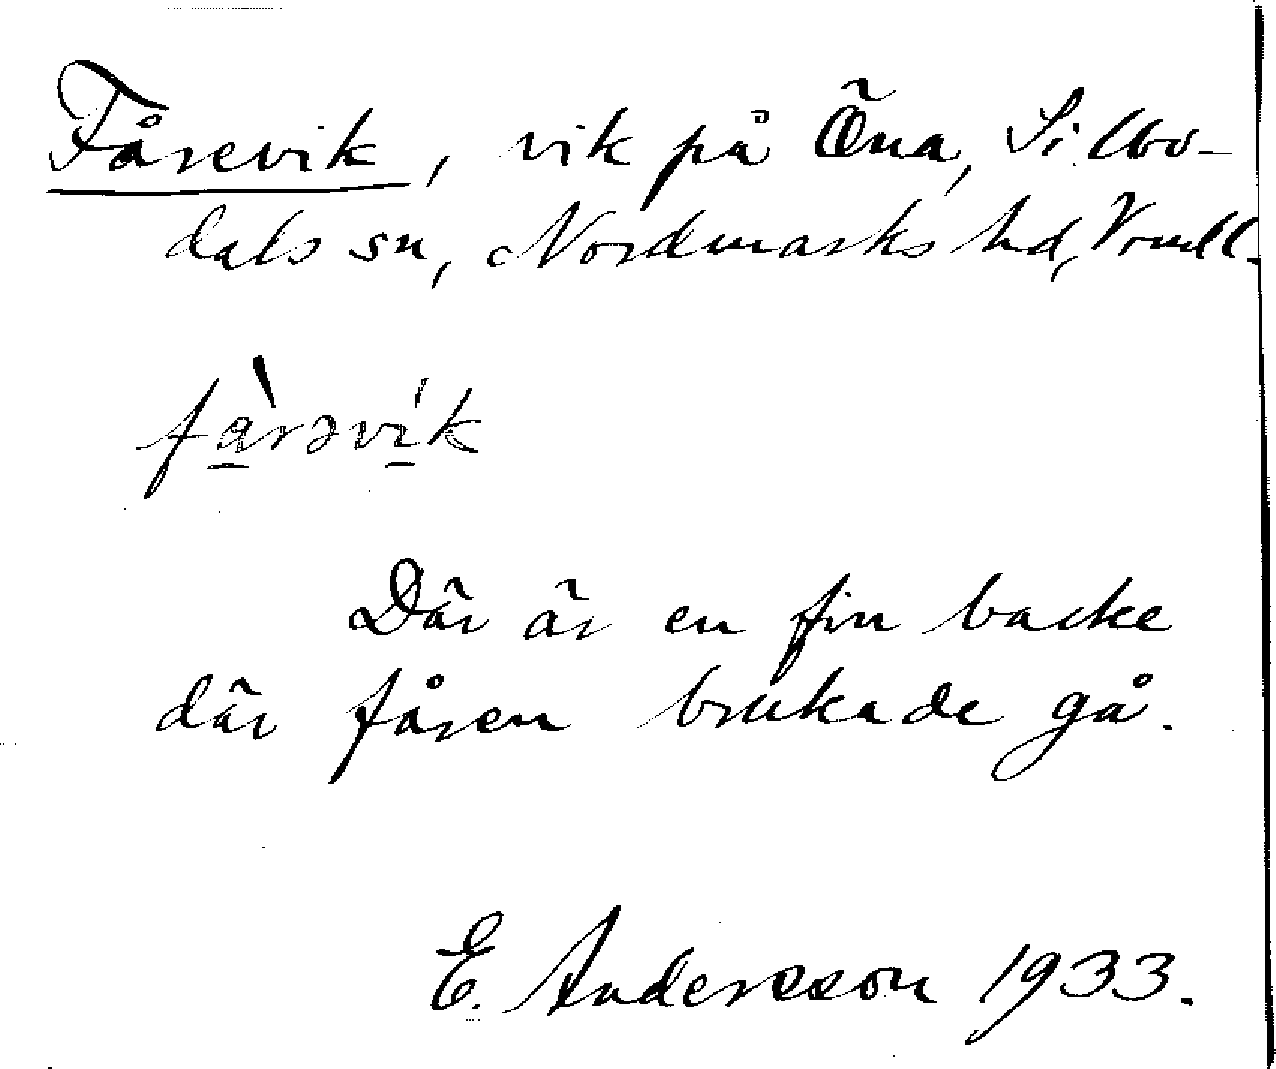 Fårevik, vik på Öna, Silbo-
dals sn, Nordmarks hd, Vrmll.
fàrəvík
Där är en fin backe
där fåren brukade gå.
E. Andersson 1933.